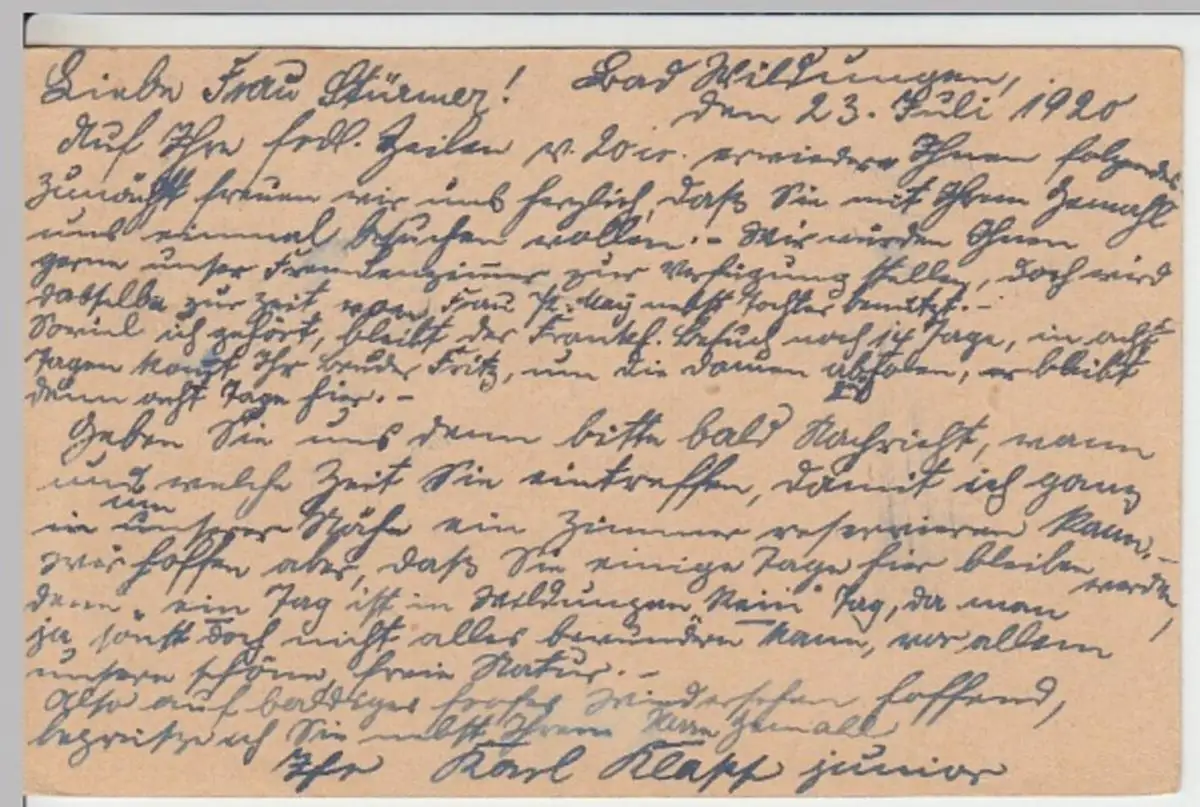 Liebe Frau Stürmer! Bad Wildungen,
den 23. Juli 1920
Auf Ihre frdl. Zeilen v. 20 cr. erwiedere Ihnen folgendes
Zunächst freuen wir uns herzlich, daß Sie mit Ihrem Gemahl
uns einmal besuchen wollen. – Wir würden Ihnen
gerne unser Fremdenzimmer zur Verfügung stellen, doch wird
dasselbe zur Zeit von Frau May nebst Tochter benützt. –
Soviel ich gehört, bleibt der Frankf. Besuch noch 14 Tage, in acht
Tagen kommt Ihr Bruder Fritz, um die Damen abholen, er bleibt
dann acht Tage hier. –
Geben Sie uns denn bitte bald Nachricht, wann
und welche Zeit Sie eintreffen, damit ich ganz
in unserer Nähe ein Zimmer reservieren kann. –
Wir hoffen aber, daß Sie einige Tage hier bleiben werden,
denn „ein Tag ist in Wildungen kein" Tag, da man
ja sonst doch nicht alles bewundern kann, vor allem
unsere schöne, freie Natur. –
Also auf baldiges frohes Wiedersehen hoffend,
begrüße ich Sie nebst Ihrem Herrn Gemahl
Ihr Karl Klapp junior